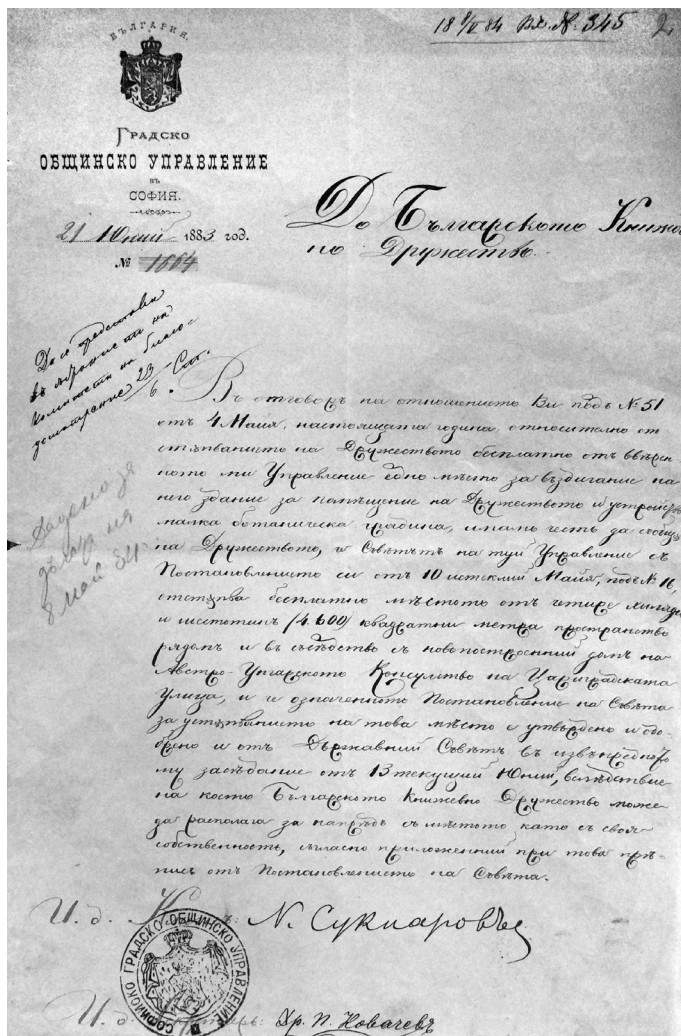 18 8/V 84 Вх. №. 345
2
БЪЛГАРИЯ.
ГРАДСКО
ОБЩИНСКО УПРАВЛЕНИЕ
ВЪ
СОФИЯ.
21 Юний 1883 год.
№ 1664
До Българското Книжов
но Дружество.
Да се представи
въ
комитети на благо-
23 Спт.
Въ отговоръ на отношението Ви подъ № 51
отъ 4 Майя, настоящата година, относително от
стѫпванието на Дружеството бесплатно отъ ввѣрен
ното ми Управление едно мѣсто за въздигание на
него здание за помѣщение на Дружеството и устройство
малка ботаническа градина, имамъ честь да съобщѫ
на Дружеството, че Съвѣтътъ на туй Управление съ
Постановлението си отъ 10 истеклий Майя, подъ № 16,
отстѫпва бесплатно мѣстото отъ четире хиляди
и шестотинъ (4.600) квадратни метра пространство
рядомъ и въ съсѣдство съ новопостроений домъ на
Австро-Унгарското Консулство на Цариградската
Улица, и че означенното Постановление на Съвѣта
за устѫпванието на това мѣсто е утвърдено и одо-
брено и отъ Държавний Съвѣтъ въ извънредното
му засѣдание отъ 13 текущий Юний, вслѣдствие
на което Българското Книжевно Дружество може
да располага за напрѣдъ съ мѣстото като съ своя
собственность, съгласно приложенний при това прѣ-
писъ отъ Постановлението на Съвѣта.
Дадено за
8 май 84
И. д. К Н. Сукнаровъ
СОФИЙСКО ГРАДСКО ОБЩИНСКО УПРАВЛЕНИЕ
И. д. Др. П. Новачевъ